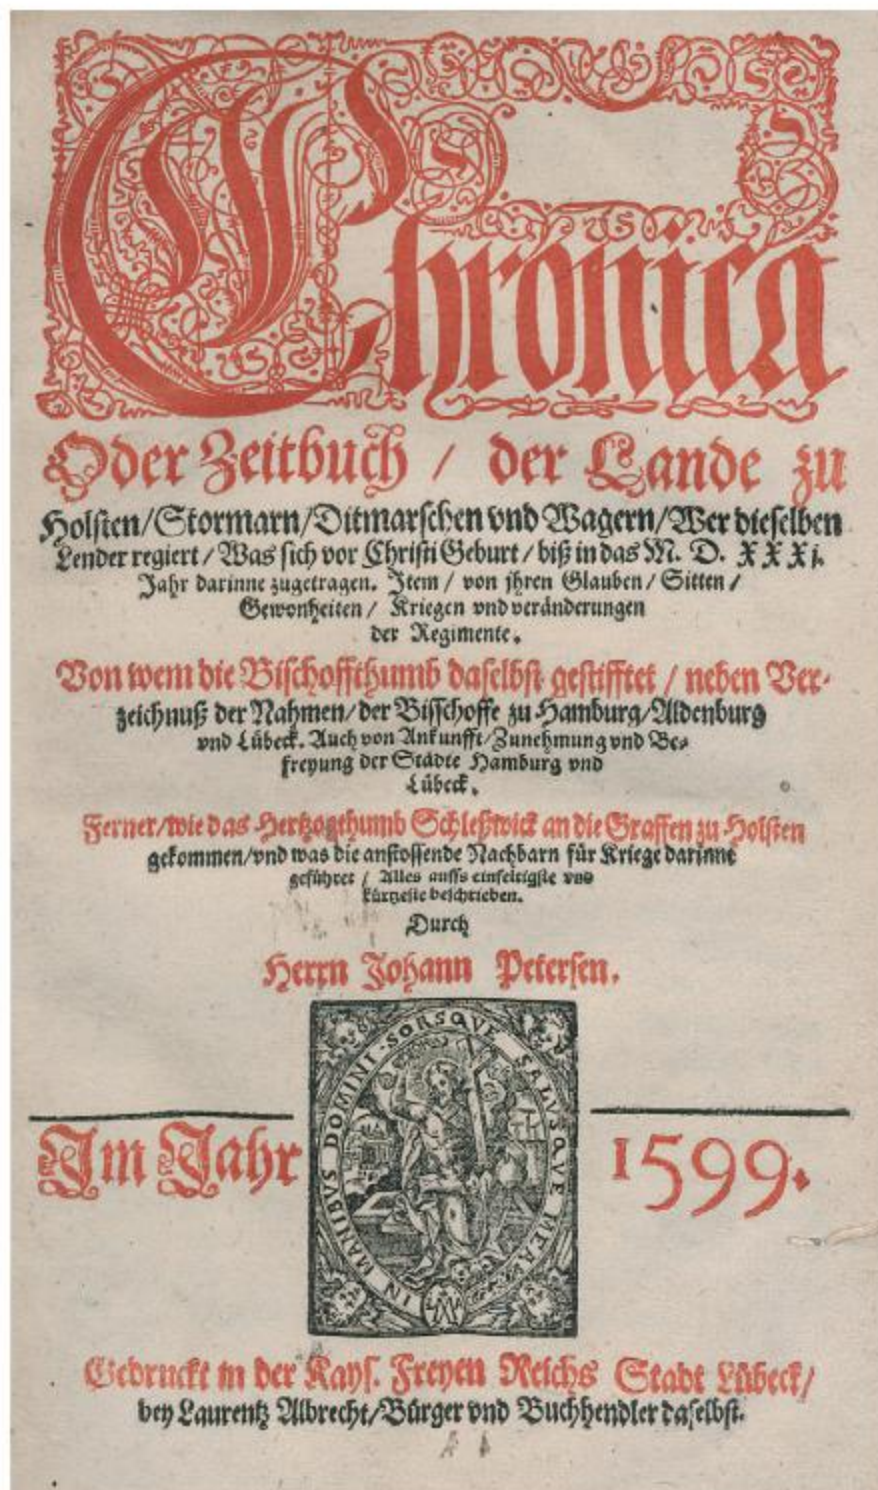 Chronica
Oder Zeitbuch / der Lande zu
Holsten/Stormarn/Ditmarschen vnd Wagern/Wer dieselben
Lender regiert / Was sich vor Christi Geburt / biß in das M. D. XXXj.
Jahr darinne zugetragen. Item / von jhren Glauben / Sitten /
Gewonheiten / Kriegen vnd veränderungen
der Regimente.
Von wem die Bischoffthumb daselbst gestifftet / neben Ver-
zeichnuß der Nahmen/der Bisschoffe zu Hamburg/Aldenburg
vnd Lübeck. Auch von Ankunfft/Zunehmung vnd Be-
freyung der Städte Hamburg vnd
Lübeck.
Ferner/wie das Hertzogthumb Schleßwick an die Graffen zu Holsten
gekommen/vnd was die anstossende Nachbarn für Kriege darinne
geführet / Alles auffs einfeltigste vnd
kürtzeste beschrieben.
Durch
Herrn Johann Petersen.
IN MANIBVS DOMINI SORSQVE SALVSQVE MEA
Im Jahr 1599.
Gedruckt in der Kays. Freyen Reichs Stadt Lübeck/
bey Laurentz Albrecht/Bürger vnd Buchhendler daselbst.